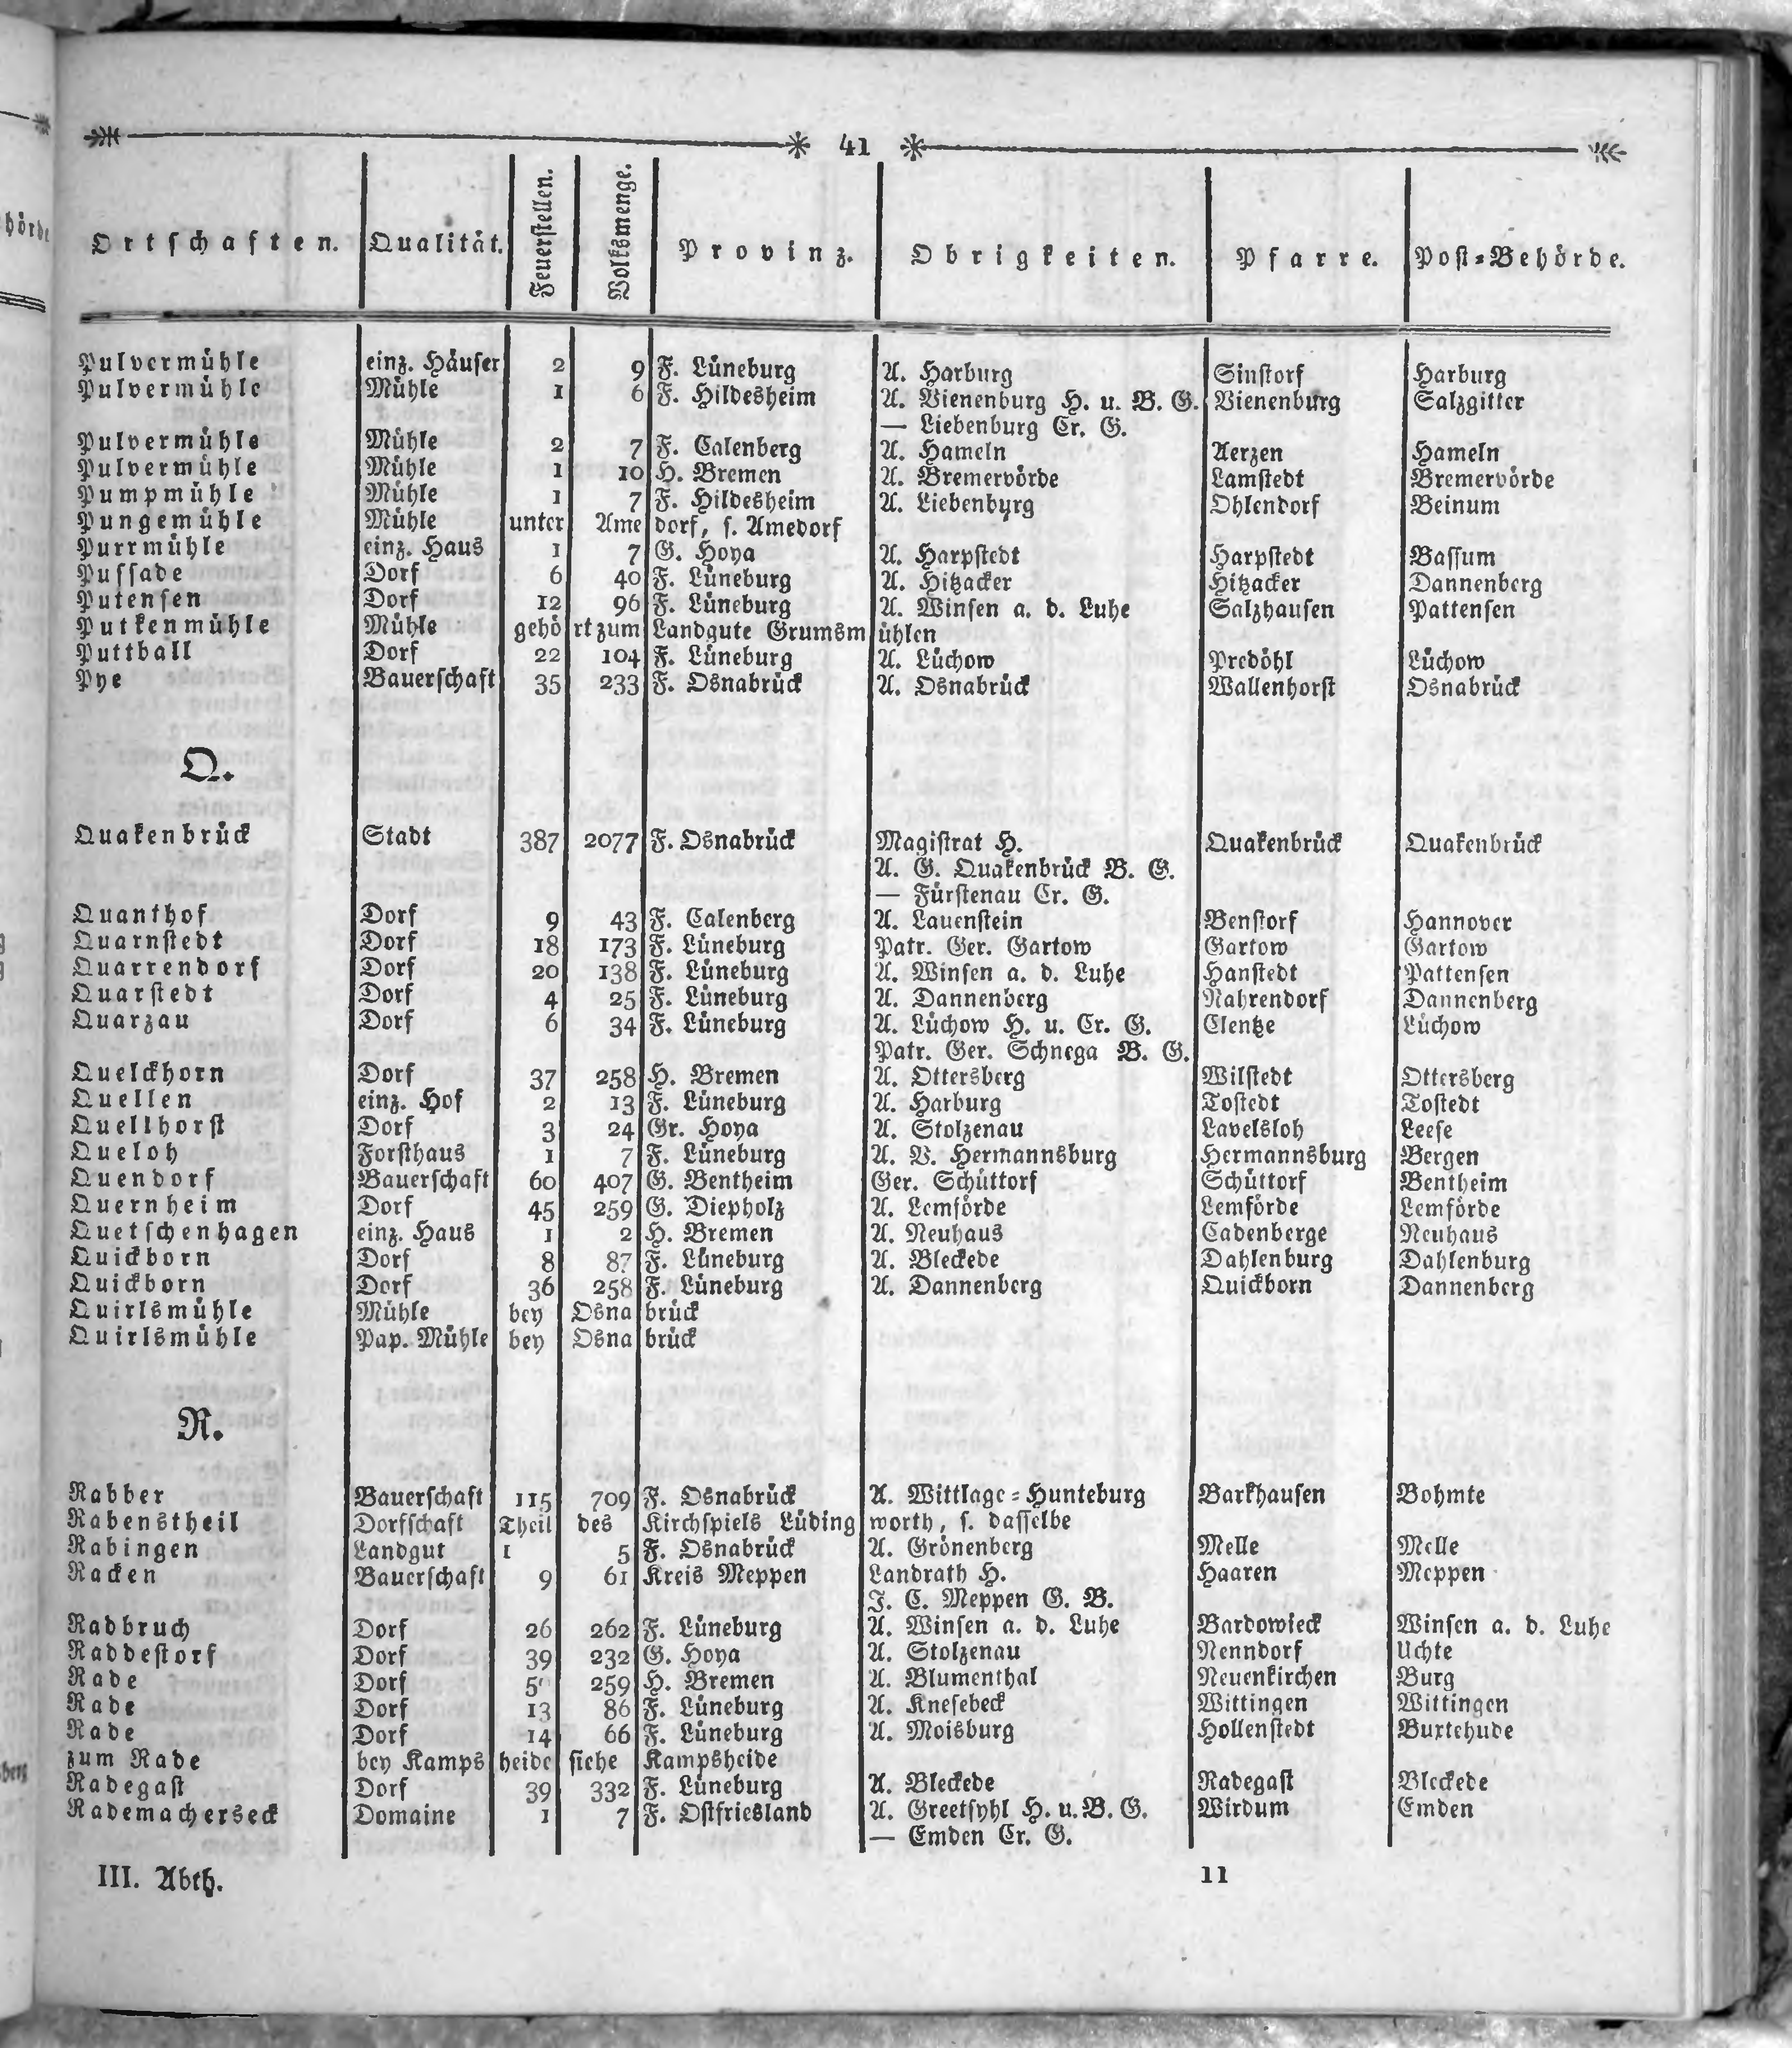 41
Ortschaften. Qualität. Feuerstellen. Volksmenge. Provinz. Obrigkeiten. Pfarre. Post-Behörde.
Pulvermühle einz. Häuser 2 9 F. Lüneburg A. Harburg Sinstorf Harburg
Pulvermühle Mühle 1 6 F. Hildesheim A. Vienenburg H. u. B. G. Vienenburg Salzgitter
— Liebenburg Cr. G.
Pulvermühle Mühle 2 7 F. Calenberg A. Hameln Aerzen Hameln
Pulvermühle Mühle 1 10 H. Bremen A. Bremervörde Lamstedt Bremervörde
Pumpmühle Mühle 1 7 F. Hildesheim A. Liebenburg Ohlendorf Beinum
Pungemühle Mühle unter Amedorf, s. Amedorf
Purrmühle einz. Haus 1 7 G. Hoya A. Harpstedt Harpstedt Bassum
Pussade Dorf 6 40 F. Lüneburg A. Hitzacker Hitzacker Dannenberg
Putensen Dorf 12 96 F. Lüneburg A. Winsen a. d. Luhe Salzhausen Pattensen
Putkenmühle Mühle gehört zum Landgute Grumsmühlen
Puttball Dorf 22 104 F. Lüneburg A. Lüchow Predöhl Lüchow
Pye Bauerschaft 35 233 F. Osnabrück A. Osnabrück Wallenhorst Osnabrück
Q.
Quakenbrück Stadt 387 2077 F. Osnabrück Magistrat H. Quakenbrück Quakenbrück
A. G. Quakenbrück B. G.
— Fürstenau Cr. G.
Quanthof Dorf 9 43 F. Calenberg A. Lauenstein Benstorf Hannover
Quarnstedt Dorf 18 173 F. Lüneburg Patr. Ger. Gartow Gartow Gartow
Quarrendorf Dorf 20 138 F. Lüneburg A. Winsen a. d. Luhe Hanstedt Pattensen
Quarstedt Dorf 4 25 F. Lüneburg A. Dannenberg Nahrendorf Dannenberg
Quarzau Dorf 6 34 F. Lüneburg A. Lüchow H. u. Cr. G. Clentze Lüchow
Patr. Ger. Schnega B. G.
Quelckhorn Dorf 37 258 H. Bremen A. Ottersberg Wilstedt Ottersberg
Quellen einz. Hof 2 13 F. Lüneburg A. Harburg Tostedt Tostedt
Quellhorst Dorf 3 24 Gr. Hoya A. Stolzenau Lavelsloh Leese
Queloh Forsthaus 1 7 F. Lüneburg A. V. Hermannsburg Hermannsburg Bergen
Quendorf Bauerschaft 60 407 G. Bentheim Ger. Schüttorf Schüttorf Bentheim
Quernheim Dorf 45 259 G. Diepholz A. Lemförde Lemförde Lemförde
Quetschenhagen einz. Haus 1 2 H. Bremen A. Neuhaus Cadenberge Neuhaus
Quickborn Dorf 8 87 F. Lüneburg A. Bleckede Dahlenburg Dahlenburg
Quickborn Dorf 36 258 F. Lüneburg A. Dannenberg Quickborn Dannenberg
Quirlsmühle Mühle bey Osnabrück
Quirlsmühle Pap. Mühle bey Osnabrück
R.
Rabber Bauerschaft 115 709 F. Osnabrück A. Wittlage-Hunteburg Barkhausen Bohmte
Rabenstheil Dorfschaft Theil des Kirchspiels Lüdingworth, s. dasselbe
Rabingen Landgut 1 5 F. Osnabrück A. Grönenberg Melle Melle
Racken Bauerschaft 9 61 Kreis Meppen Landrath H. Haaren Meppen
J. C. Meppen G. B.
Radbruch Dorf 26 262 F. Lüneburg A. Winsen a. d. Luhe Bardowieck Winsen a. d. Luhe
Raddestorf Dorf 39 232 G. Hoya A. Stolzenau Nenndorf Uchte
Rade Dorf 259 H. Bremen A. Blumenthal Neuenkirchen Burg
Rade Dorf 13 86 F. Lüneburg A. Knesebeck Wittingen Wittingen
Rade Dorf 14 66 F. Lüneburg A. Moisburg Hollenstedt Buxtehude
zum Rade bey Kampsheide siehe Kampsheide
Radegast Dorf 39 332 F. Lüneburg A. Bleckede Radegast Bleckede
Rademacherseck Domaine 1 7 F. Ostfriesland A. Greetsyhl H. u. B. G. Wirdum Emden
— Emden Cr. G.
III. Abth. 11